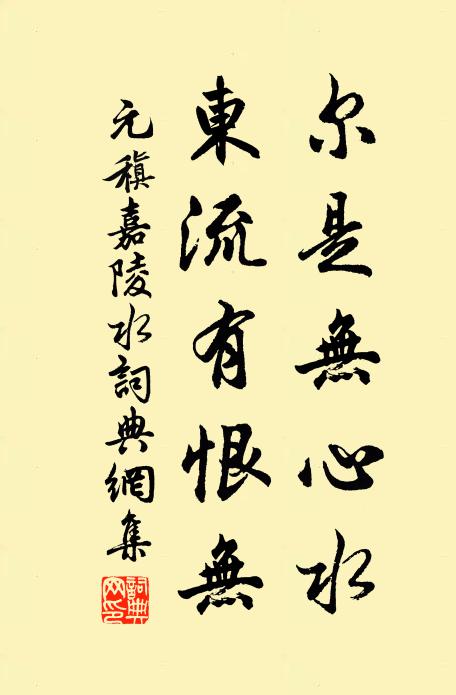 尔是無心水
東流有恨無
元稹嘉陵水詞典網集
詞典网印